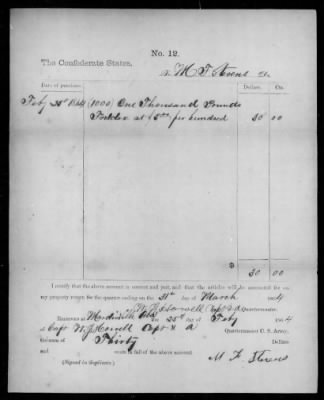 No. 12.
The Confederate States,
To M F Stevens Dr.
Date of purchase. Dollars. Cts.
Feby 25th 1864 (1000) One Thousand Pounds
Fodder at $3.00 per hundred 30 00
$ 30 00
I certify that the above account is correct and just; and that the articles will be accounted for on
my property return for the quarter ending on the 31st day of March 1864
Capt & A Quartermaster.
Received at the 25th day of Feby 1864
of Capt W J Howell Capt & A Quartermaster C. S. Army,
the sum of Thirty Dollars
and cents in full of the above account.
(Signed in duplicate.)
M F Stevens